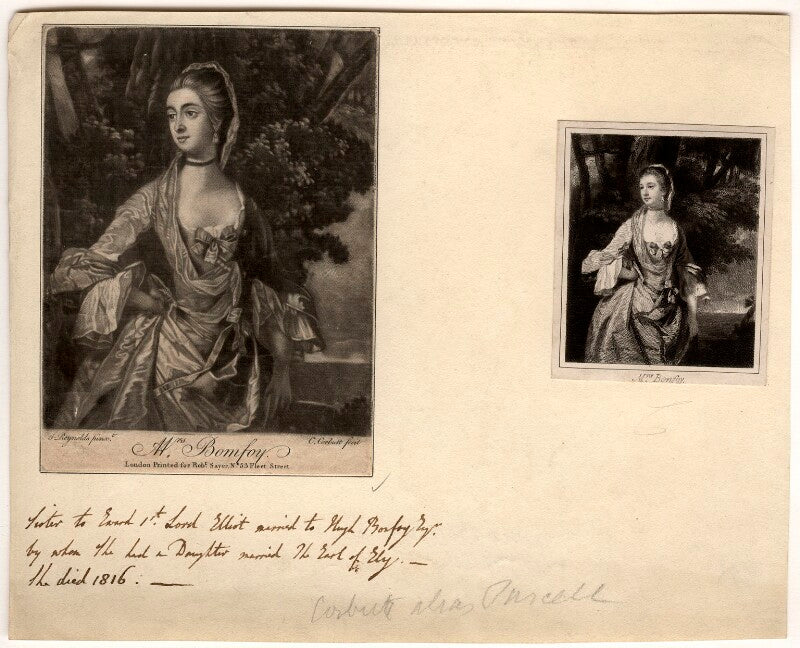 J. Reynolds pinx.t
C. Corbutt fecit
M.rs Bomfoy.
London Printed for Rob.t Sayer, N.o 53 Fleet Street.
M.rs Bonfoy.
Sister to Eward 1st. Lord Elliot married to Hugh Bonfoy Esq.r
by whom She had a Daughter married The Earl of Ely. —
She died 1816: —
Corbutt alias Purcell